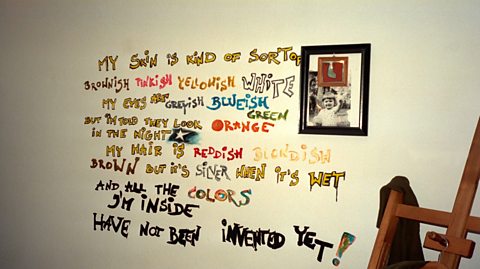 MY SKIN IS KIND OF SORTOF
BROWNISH PINKISH YELLOWISH WHITE
MY EYES ARE GREYISH BLUEISH GREEN
BUT I'M TOLD THEY LOOK ORANGE
IN THE NIGHT
MY HAIR IS REDDISH BLONDISH
BROWN BUT IT'S SILVER WHEN IT'S WET
AND ALL THE COLORS
I'M INSIDE
HAVE NOT BEEN INVENTED YET!